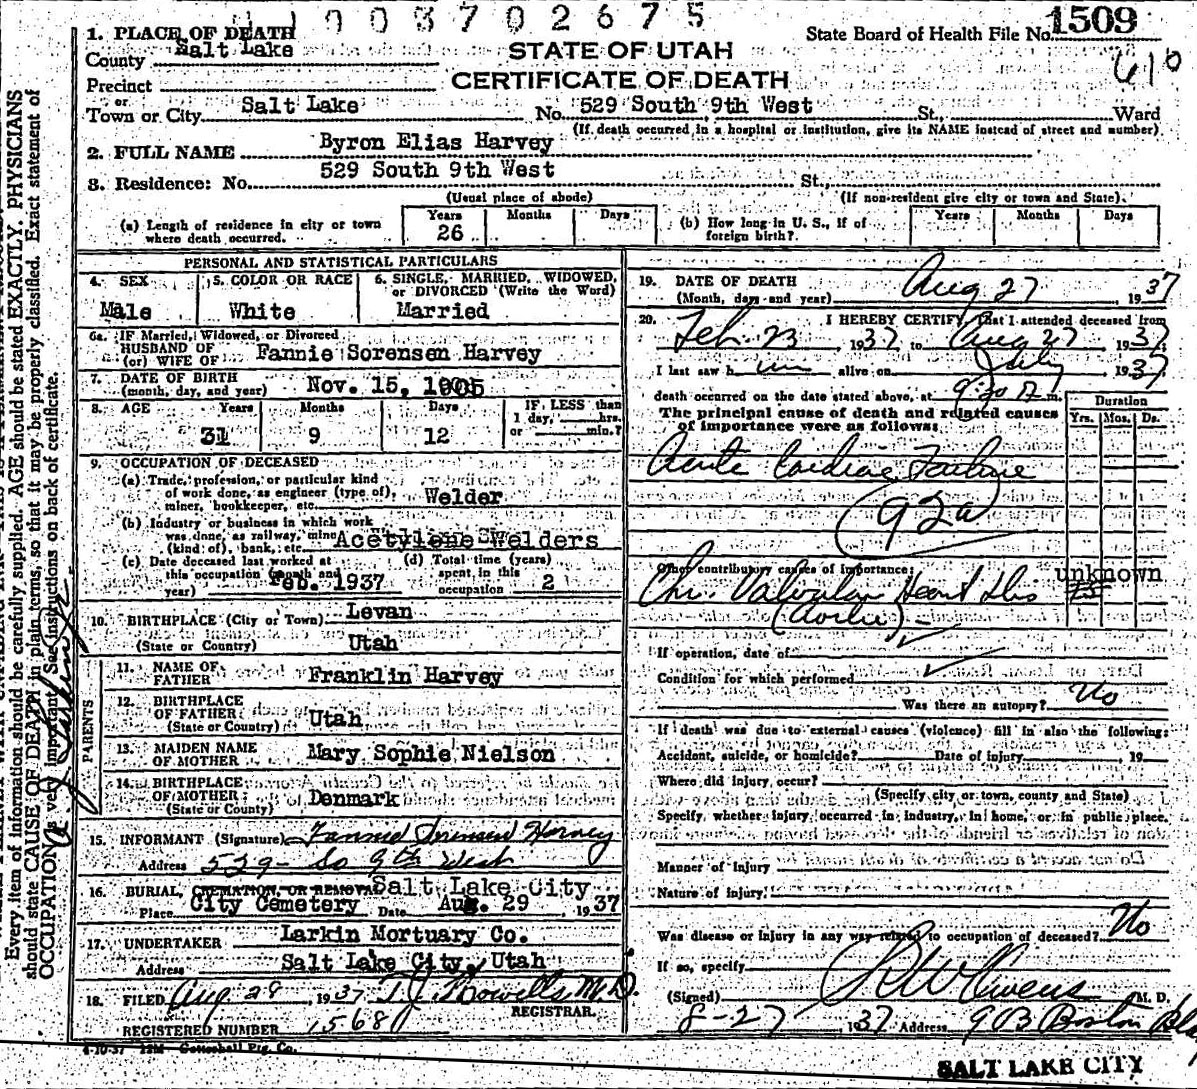 1003702675
1. PLACE OF DEATH
State Board of Health File No. 1509
County Salt Lake
STATE OF UTAH
610
CERTIFICATE OF DEATH
Precinct
or
Town or City Salt Lake No. 529 South 9th West St., Ward
(If death occurred in a hospital or institution, give its NAME instead of street and number)
2. FULL NAME Byron Elias Harvey
3. Residence: No. 529 South 9th West St.,
(Usual place of abode) (If non-resident give city or town and State)
(a) Length of residence in city or town where death occurred. Years 26 Months Days
(b) How long in U. S., if of foreign birth? Years Months Days
PERSONAL AND STATISTICAL PARTICULARS
4. SEX Male
5. COLOR OR RACE White
6. SINGLE, MARRIED, WIDOWED, or DIVORCED (Write the Word) Married
6a. IF Married, Widowed, or Divorced
HUSBAND OF
(or) WIFE OF Fannie Sorensen Harvey
7. DATE OF BIRTH
(month, day, and year) Nov. 15, 1905
8. AGE Years 31 Months 9 Days 12
IF LESS than
1 day, hrs.
or min.?
9. OCCUPATION OF DECEASED
(a) Trade, profession, or particular kind
of work done, as engineer (type of),
miner, bookkeeper, etc. Welder
(b) Industry or business in which work
was done, as railway, mine
(kind of), bank, etc. Acetylene Welders
(c) Date deceased last worked at
this occupation (month and
year) Feb. 1937
(d) Total time (years)
spent in this
occupation 2
10. BIRTHPLACE (City or Town) Levan
(State or Country) Utah
PARENTS
11. NAME OF
FATHER Franklin Harvey
12. BIRTHPLACE
OF FATHER
(State or Country) Utah
13. MAIDEN NAME
OF MOTHER Mary Sophie Nielson
14. BIRTHPLACE
OF MOTHER
(State or Country) Denmark
15. INFORMANT (Signature) Fannie Sorensen Harvey
Address 529 - So 9th West
16. BURIAL, CREMATION, OR REMOVAL Salt Lake City
Place City Cemetery Date Aug. 29, 1937
17. UNDERTAKER Larkin Mortuary Co.
Address Salt Lake City, Utah
18. FILED Aug 28, 1937 T. J. Howells M.D.
REGISTRAR.
REGISTERED NUMBER 1568
4-10-37 12M Gottschall Ptg. Co.
19. DATE OF DEATH
(Month, day and year) Aug 27 1937
20. I HEREBY CERTIFY, That I attended deceased from
Feb. 23, 1937, to Aug 27 1937,
I last saw h im alive on July 1937
death occurred on the date stated above, at 9:30 m.
The principal cause of death and related causes
of importance were as follows:
Duration
Yrs. Mos. Ds.
Acute Cardiac Failure
92a
Other contributory causes of importance:
unknown
Chr. Valvular Heart Dis
(Aortic)
If operation, date of
Condition for which performed
Was there an autopsy? No
If death was due to external causes (violence) fill in also the following:
Accident, suicide, or homicide? Date of injury 19
Where did injury occur?
(Specify city or town, county and State)
Specify whether injury occurred in industry, in home, or in public place.
Manner of injury
Nature of injury
Was disease or injury in any way related to occupation of deceased? No
If so, specify
(Signed) R W Owens M. D.
8-27 1937 Address 903 Boston Bldg
SALT LAKE CITY
Every item of information should be carefully supplied. AGE should be stated EXACTLY. PHYSICIANS
should state CAUSE OF DEATH in plain terms, so that it may be properly classified. Exact statement of
OCCUPATION is very important. See instructions on back of certificate.